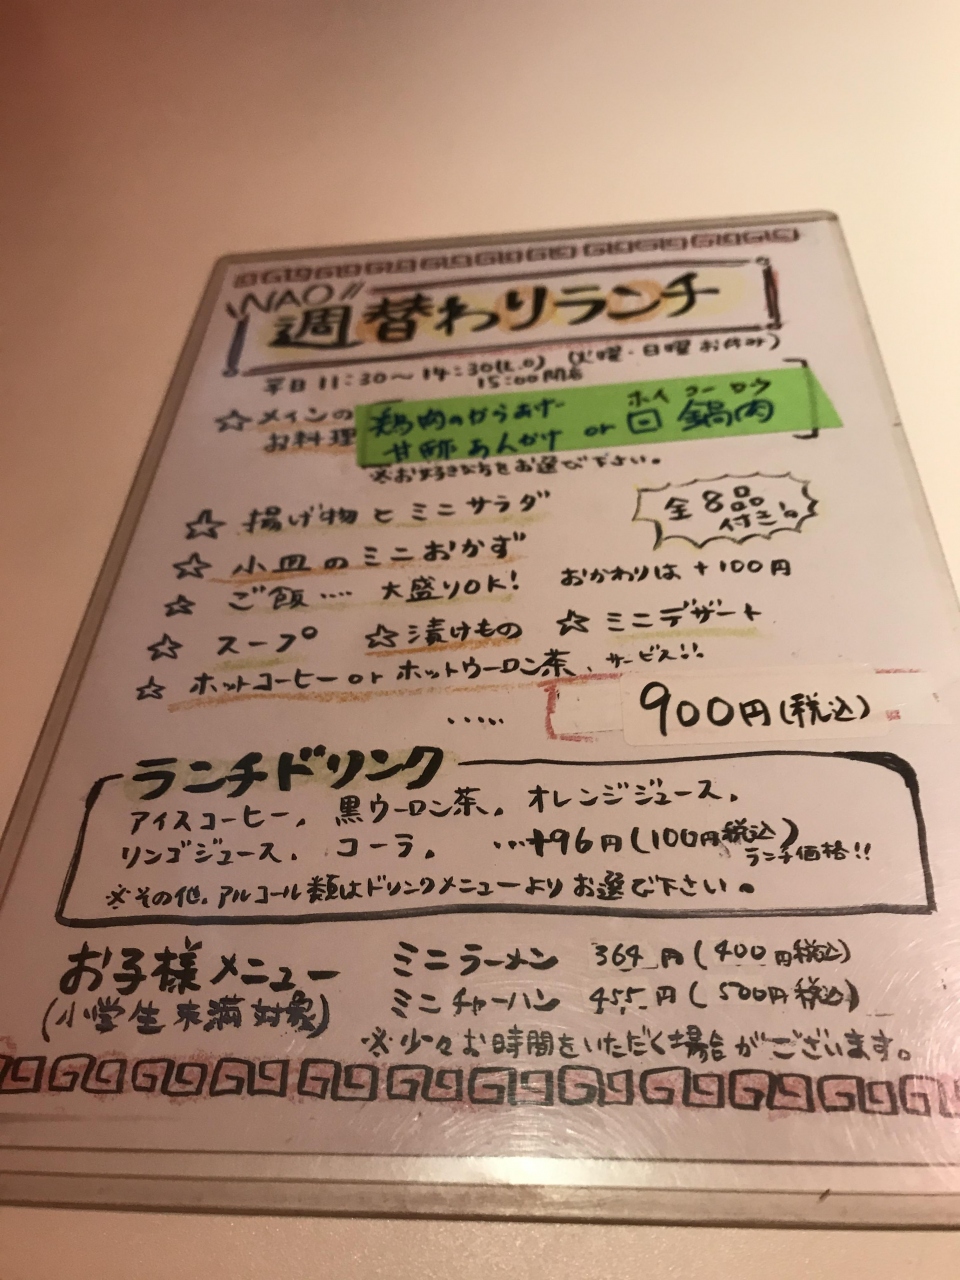 NAO!!
週替わりランチ
平日 11:30〜14:30(L.O) (火曜・日曜お休み)
15:00閉店
☆メインの
お料理
鶏肉のからあげ
甘酢あんかけ or 回鍋肉
ホイ コー ロウ
※お好きな方をお選び下さい。
☆ 揚げ物とミニサラダ
全8品
付き!。
☆ 小皿のミニおかず
☆ ご飯‥‥ 大盛りOK! おかわりは+100円
☆ スープ ☆漬けもの ☆ ミニデザート
☆ ホットコーヒー or ホットウーロン茶、サービス!!
‥‥‥ 900円(税込)
ランチドリンク
アイスコーヒー。 黒ウーロン茶。 オレンジジュース。
リンゴジュース。 コーラ。 ‥‥+96円(100円税込)
ランチ価格!!
※その他、アルコール類はドリンクメニューよりお選び下さい。
お子様メニュー ミニラーメン 364円(400円税込)
(小学生未満対象) ミニチャーハン 455円(500円税込)
※少々お時間をいただく場合がございます。